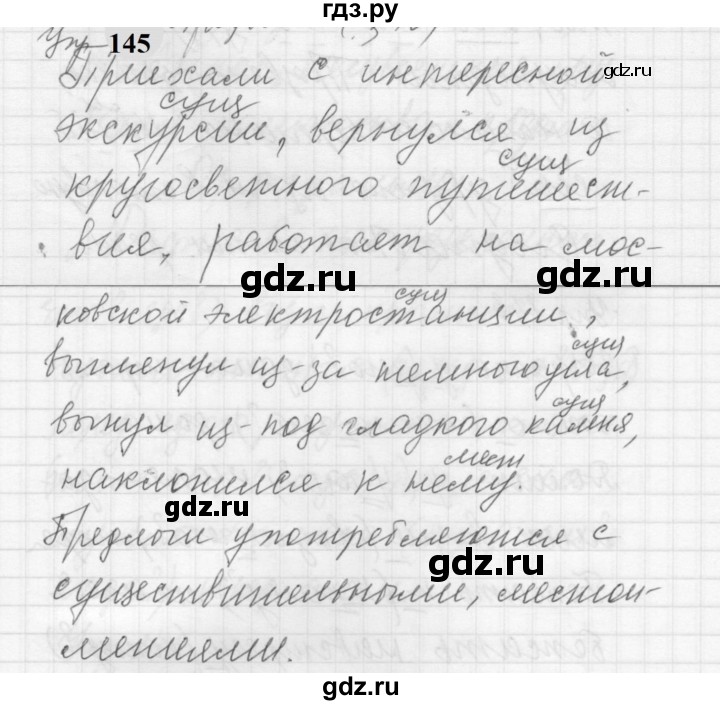 гдз.ру
Упр 145
Приехали с интересной
gdz.ru
сущ
экскурсии, вернулся из
сущ
кругосветного путешест-
вия, работает на мос-
gdz.ru gdz.ru
сущ
ковской электростанции,
сущ
выглянул из-за темного угла,
сущ
вынул из-под гладкого камня,
мест
наклонился к нему.
gdz.ru
Предлоги употребляются с
gdz.ru
существительными, местои-
мениями.
gdz.ru